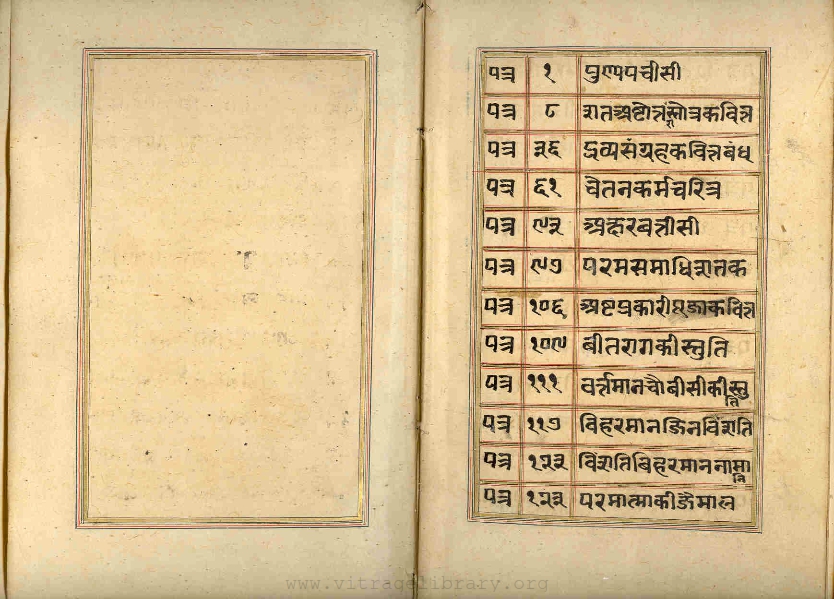 पत्र १ पुण्यपचीसी
पत्र ८ शतअष्टोत्तरस्तोत्रकवित्त
पत्र ३६ द्रव्यसंग्रहकवित्तबंध
पत्र ६१ चेतनकर्मचरित्र
पत्र ९३ अक्षरबत्तीसी
पत्र ९७ परमसमाधिशतक
पत्र १०६ अष्टप्रकारीपूजाकवित्त
पत्र १०९ बीतरागकीस्तुति
पत्र १११ वर्त्तमानचौबीसीकीस्तुति
पत्र ११७ विहरमानजिनविंशति
पत्र १२२ विंशतिबिहरमाननामानि
पत्र १२३ परमात्माकीजैमाल
www.vitragelibrary.org